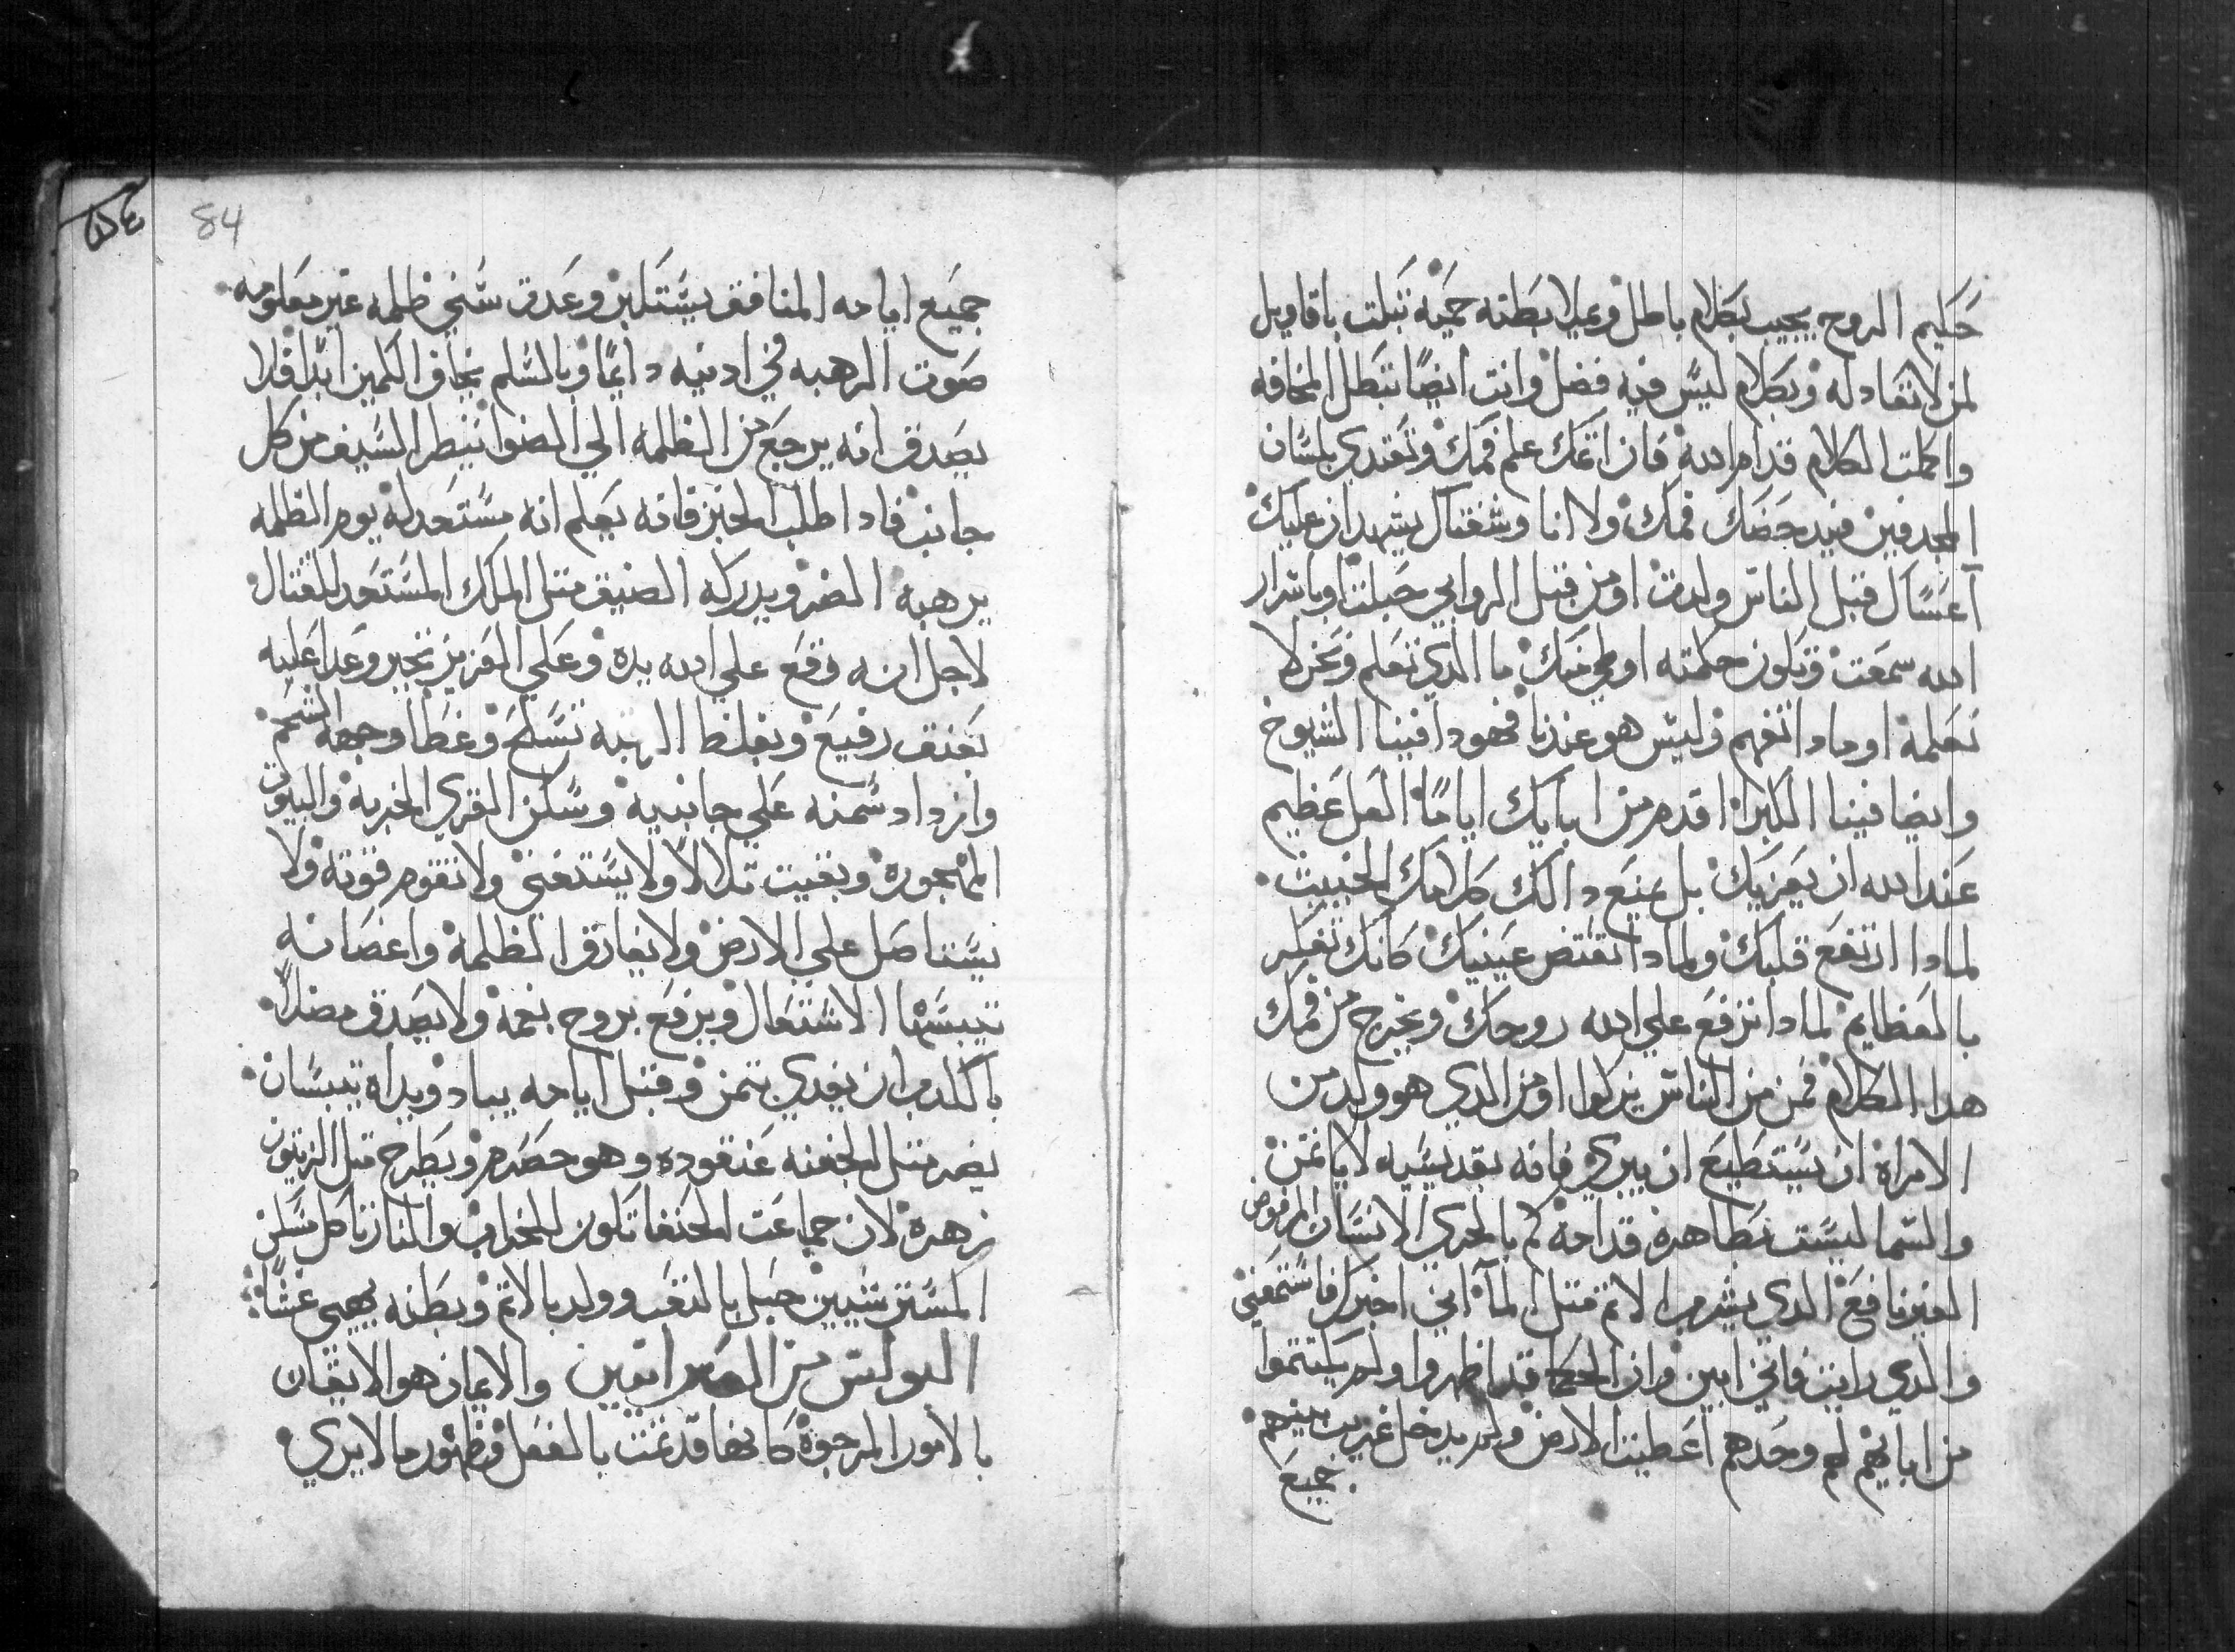 حكيم الروح يجيب بكلام باطل وعيلا بطنه حميه تبكت باقاويل
لمن لا تقادله وبكلام ليس فيه فضل وانت ايضا تبطل المخافه
واكملت الكلام قدام الله فان اثمك علم فمك وتقتدي بلسان
المجدفين فيدحضك فمك ولا انا وشفتاك يشهدان عليك
اعساك قبل الناس ولدت او من قبل الروابي حبلت او باسرار
الله سمعت وتكون حكمته اوطي منك ما الدي تعلم ونحن لا
نعلمه او مادا تفهم وليس هو عندنا فهودا فينا الشيوخ
وايضا فينا الكبرا اقدم من ابايك اياما العل عظيم
عند الله ان يعزيك بل يمنع دالك كلامك الخبيث
لمادا ارتفع قلبك ولمادا تغتض عينيك كانك تفكر
بالعظايم لمادا ترفع علي الله روحك ويخرج من فمك
هدا الكلام فمن من الناس يزكوا او من الدي هو ولد من
الامراة ان يستطيع ان يبري فانه بقديسيه لا ياتمن
والسما ليست بطاهرة قدامه كم بالحري الانسان المرفوض
الغير نافع الدي يشرب الاتم متل المآ اني اخبرك فاستمعني
والدي رايت فاني ابين وان الحكما قد اظهروا ولم يكتتموا
من ابايهم لهم وحدهم اعطيت الارض ولم يدخل غريب بينهم
جميع
84
جميع ايامه المنافق يستكبر وعدت سني ظلمه غير معلومه
صوت الرهبه في ادنيه دايما وبالسلم يخاف الكمين ابدا فلا
يصدق انه يرجع من الظلمه الي الضوا ننيظر السيف من كل
جانب فادا طلب الخبز فانه يعلم انه مستعد له يوم الظلمه
يرهبه الضر ويدركه الضيق متل الملك المستعد للقتال
لاجل انه رفع علي الله يده وعلي العزيز تجبر وعدا عليه
بعنق رفيع وبغلظ الرقبه تسلح وغطا وجهه الشحم
وازداد سمنه علي جانبيه وسكن القري الخربه والبيوت
المهجوره وبقيت تلالا ولا يستغني ولا تقوم قوته ولا
يستاصل علي الارض ولا يفارق الظلمه واغصانه
تيبسها الاشتعال ويرفع بروح بفمه ولا يصدق مضلا
بالكدب ان يفدي بتمن وقبل ايامه يباد ويداه تيبسان
يضر متل الجفنه عنقوده وهو حصرم ويطرح متل الزيتون
زهره لان جماعت الحنفا تكون للخراب والنار تاكل مسكن
المسترتشيين حبل بالتعب وولد بالاتم وبطنه يهيي غشا
البولس من العبرانيين والايمان هو الايقان
بالامور المرجوة كانها قد تمت بالفعل وظهور ما لا يري